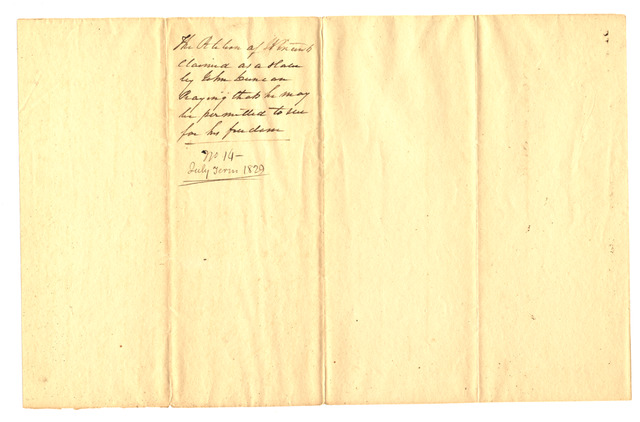 The Petition of Vincent
claimed as a slave
by John Duncan
Praying that he may
be permitted to sue
for his freedom
No 14 —
July Term 1829